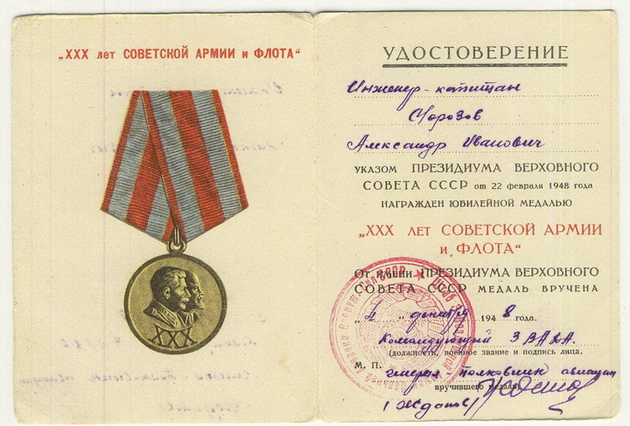 „XXX лет СОВЕТСКОЙ АРМИИ и ФЛОТА“
XXX
УДОСТОВЕРЕНИЕ
Инженер-капитан
Морозов
Александр Иванович
УКАЗОМ ПРЕЗИДИУМА ВЕРХОВНОГО
СОВЕТА СССР от 22 февраля 1948 года
НАГРАЖДЕН ЮБИЛЕЙНОЙ МЕДАЛЬЮ
„XXX ЛЕТ СОВЕТСКОЙ АРМИИ
и ФЛОТА“
От имени ПРЕЗИДИУМА ВЕРХОВНОГО
СОВЕТА СССР МЕДАЛЬ ВРУЧЕНА
декабря 1948 года.
Командующий 3 ВАКА.
(должность, военное звание и подпись лица,
М. П. генерал-полковник авиации
вручившего медаль)
(Жданов)